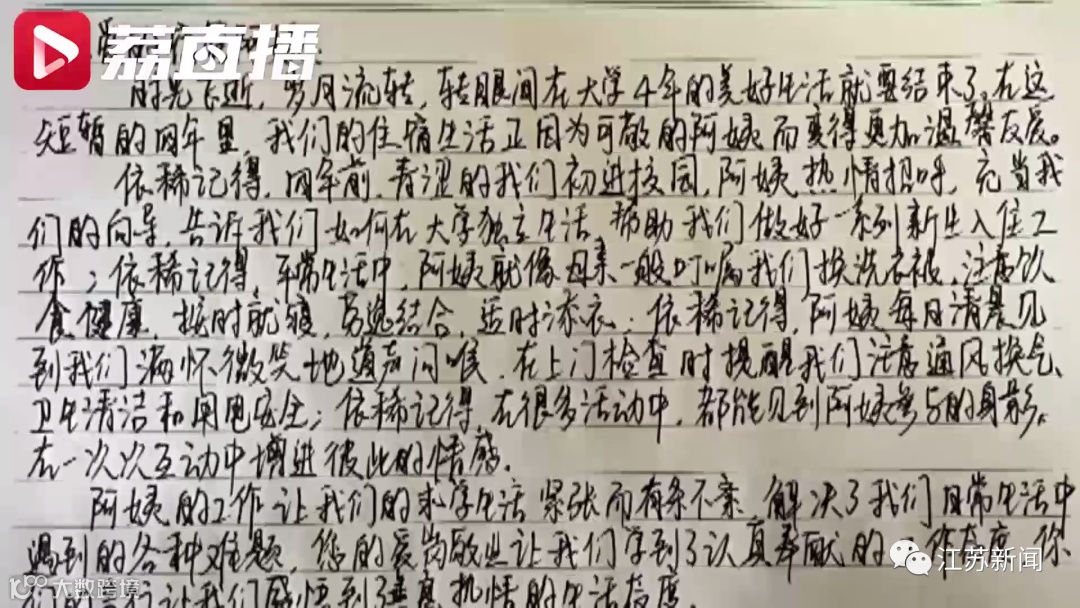 荔直播
时光飞逝，岁月流转，转眼间在大学4年的美好生活就要结束了。在这
短暂的四年里，我们的住宿生活正因为可敬的阿姨而变得更加温馨友爱。
依稀记得，四年前，青涩的我们初进校园，阿姨热情招呼，充当我
们的向导，告诉我们如何在大学独立生活，帮助我们做好一系列新生入住工
作；依稀记得，平常生活中，阿姨就像母亲一般叮嘱我们换洗衣被，注意饮
食健康，按时就寝，劳逸结合，适时添衣；依稀记得，阿姨每日清晨见
到我们满怀微笑地道声问候，在上门检查时提醒我们注意通风换气、
卫生清洁和用电安全；依稀记得，在很多活动中，都能见到阿姨参与的身影。
在一次次互动中增进彼此的情感。
阿姨的工作让我们的求学生活紧张而有条不紊，解决了我们日常生活中
遇到的各种难题，您的爱岗敬业让我们学到了认真奉献的工作态度，你
们的言行让我们感悟到了满热情的生活态度。
江苏新闻
大数跨境